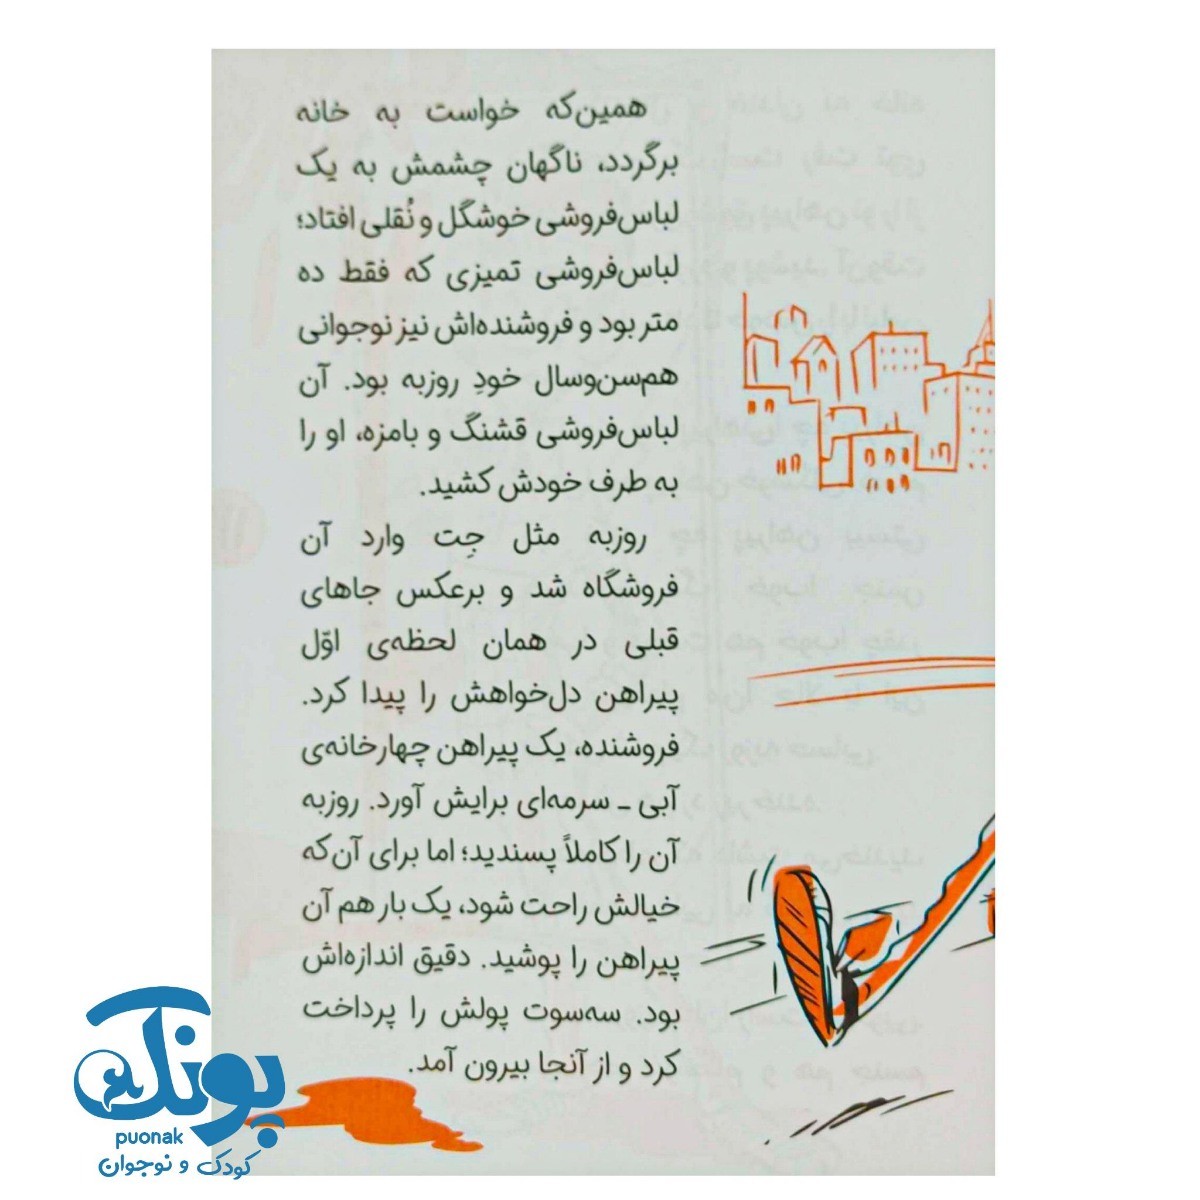 همین‌که خواست به خانه
برگردد، ناگهان چشمش به یک
لباس‌فروشی خوشگل و نُقلی افتاد؛
لباس‌فروشی تمیزی که فقط ده
متر بود و فروشنده‌اش نیز نوجوانی
هم‌سن‌وسال خودِ روزبه بود. آن
لباس‌فروشی قشنگ و بامزه، او را
به طرف خودش کشید.
روزبه مثل جِت وارد آن
فروشگاه شد و برعکس جاهای
قبلی در همان لحظه‌ی اوّل
پیراهن دل‌خواهش را پیدا کرد.
فروشنده، یک پیراهن چهارخانه‌ی
آبی ـ سرمه‌ای برایش آورد. روزبه
آن را کاملاً پسندید؛ اما برای آن‌که
خیالش راحت شود، یک بار هم آن
پیراهن را پوشید. دقیق اندازه‌اش
بود. سه‌سوت پولش را پرداخت
کرد و از آنجا بیرون آمد.
پونک
puonak
کودک و نوجوان